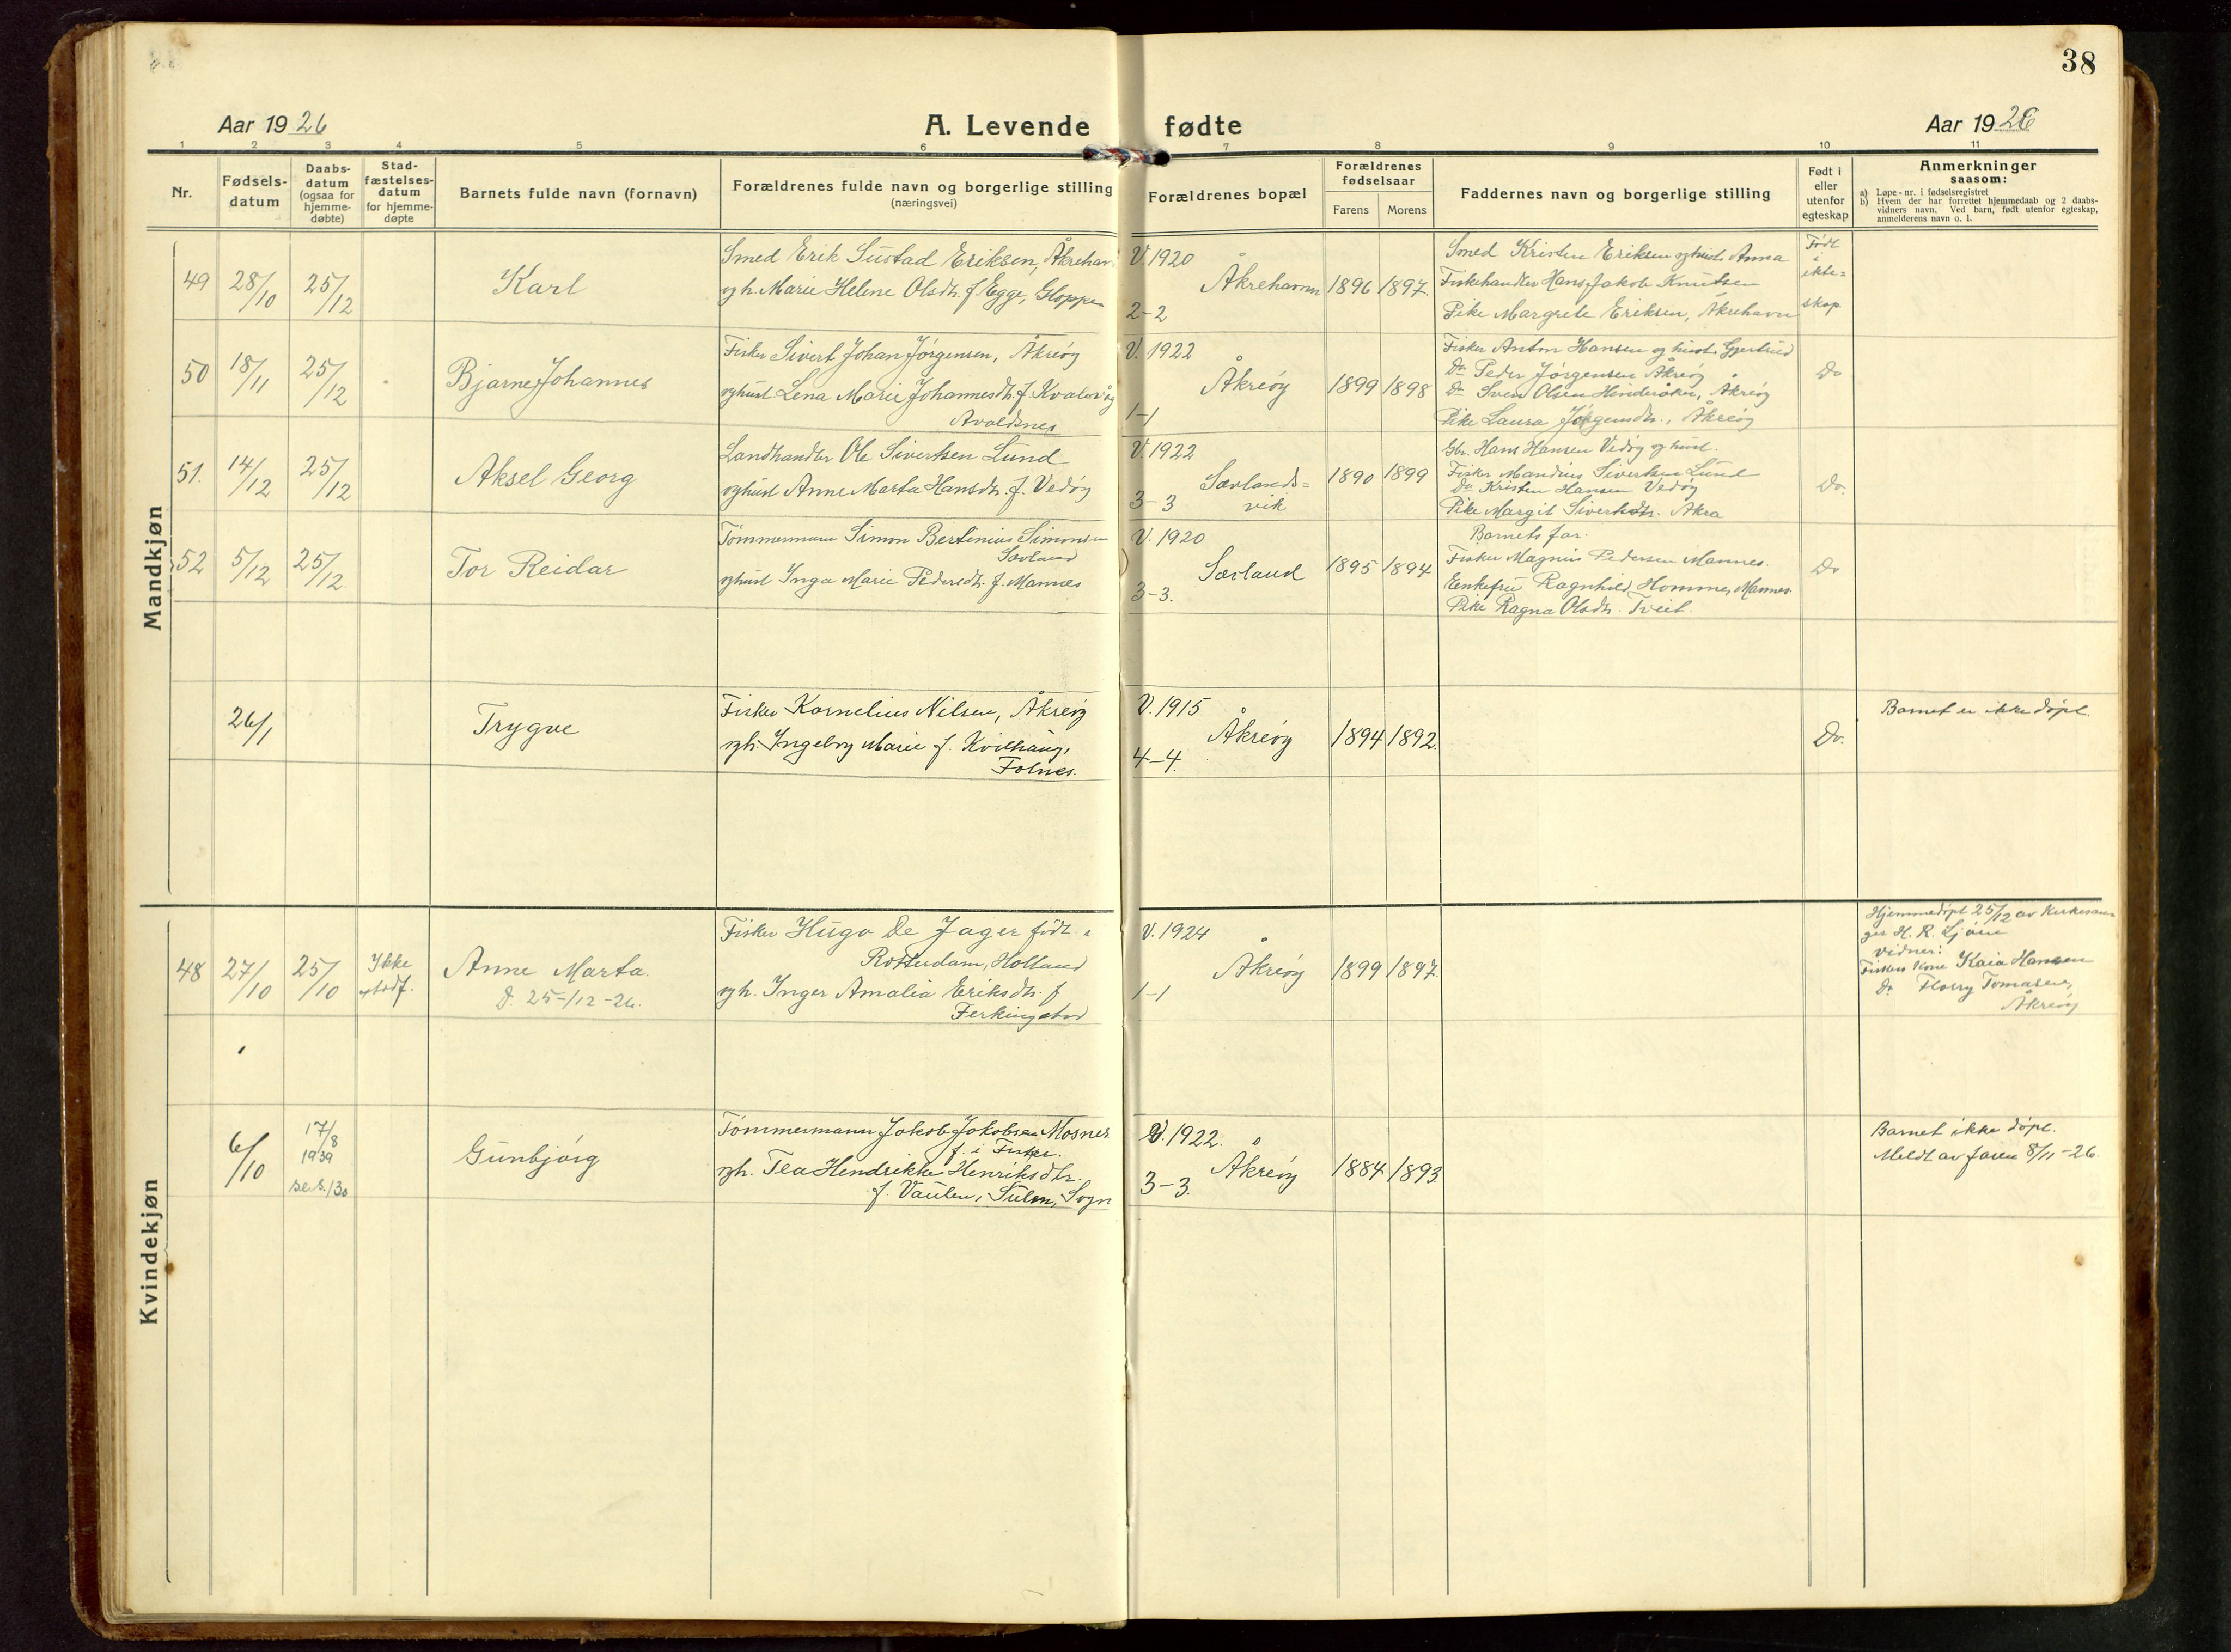 38
Aar 1926
A. Levende fødte
Aar 1926
1 2 3 4 5 6 7 8 9 10 11
Nr.
Fødsels-
datum
Daabs-
datum
(ogsaa for
hjemme-
døbte)
Stad-
fæstelses-
datum
for hjemme-
døpte
Barnets fulde navn (fornavn)
Forældrenes fulde navn og borgerlige stilling
(næringsvei)
Forældrenes bopæl
Forældrenes
fødselsaar
Farens Morens
Faddernes navn og borgerlige stilling
Født i
eller
utenfor
egteskap
Anmerkninger
saasom:
a) Løpe-nr. i fødselsregistret
b) Hvem der har forrettet hjemmedaab og 2 daabs-
vidners navn. Ved barn, født utenfor egteskap,
anmelderens navn o. l.
Mandkjøn
49 28/10 25/12
Karl
Smed Erik Sustad Eriksen, Åkrehav
og h. Marie Helene Olsdtr. f. Egge, Gloppen
V. 1920
Åkrehavn
2-2
1896 1897
Smed Kristen Eriksen og hust. Anna
Fiskehandler Hans Jakob Knutsen
Pike Margrete Eriksen, Åkrehavn
Født
i
ekte-
skap.
50 18/11 25/12
Bjarne Johannes
Fisker Sivert Johan Jørgensen, Åkreøy
og hust. Lena Marie Johannesdtr. f. Kvalevåg
Avaldsnes
V. 1922
Åkreøy
1-1
1899 1898
Fisker Anton Hansen og hust. Gjertrud
Do Peder Jørgensen Åkreøy
Do Sven Olsen Hinderåker, Åkreøy
Pike Laura Jørgensdtr., Åkreøy
Do
51. 14/12 25/12
Aksel Georg
Landhandler Ole Sivertsen Lund
og hust Anne Marta Hansdtr. f. Vedøy
V. 1922
Sævlands-
vik
3-3
1890 1899
Gbr. Hans Hansen Vedøy og hust.
Fisker Mandius Sivertsen Lund
Do Kristen Hansen Vedøy
Pike Margit Sivertsdtr. Åkra
Do.
52 5/12 25/12
Tor Reidar
Tømmermann Simon Bertinius Simonsen
Sævland
og hust Inga Marie Pedersdtr. f. Mannes
V. 1920
Sævland
3-3.
1895 1894
Barnets far.
Fisker Magnus Pedersen Mannes.
Enkefru Ragnhild Homme, Mannes
Pike Ragna Olsdtr. Tveit.
Do
26/1
Trygve
Fisker Kornelius Nilsen, Åkreøy
og h. Ingeborg Marie f. Kvilhaug,
Folnes.
V. 1915
Åkreøy
4-4.
1894 1892.
Do.
Barnet er ikke døpt.
Kvindekjøn
48 27/10 25/10
Ikke
stadf.
Anne Marta.
D. 25-/12-26.
Fisker Hugo De Jager født i
Rotterdam, Holland
og h. Inger Amalia Eriksdtr. f
Ferkingstad
V. 1924
Åkreøy
1-1
1899 1897.
Hjemmedøpt 25/12 av Kirkesan-
ger H. R. Ljøen
Vidner:
Fiskers kone Kaia Hansen
Do Florry Tomasen,
Åkreøy
6/10
17/8
1939
se s. 130
Gunbjørg
Tømmermann Jakob Jakobsen Mosnes
f. i Fister.
og h. Tea Hendrikke Henriksdtr.
f. Vaulen, Sulen, Sogn
V. 1922.
Åkreøy
3-3.
1884 1893
Barnet ikke døpt.
Meldt av faren 8/11-26.